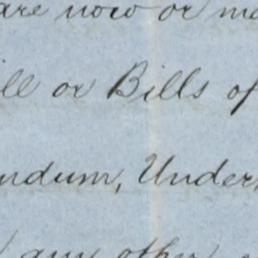 are now or ma
ill or Bills of
ndum, Under
any other